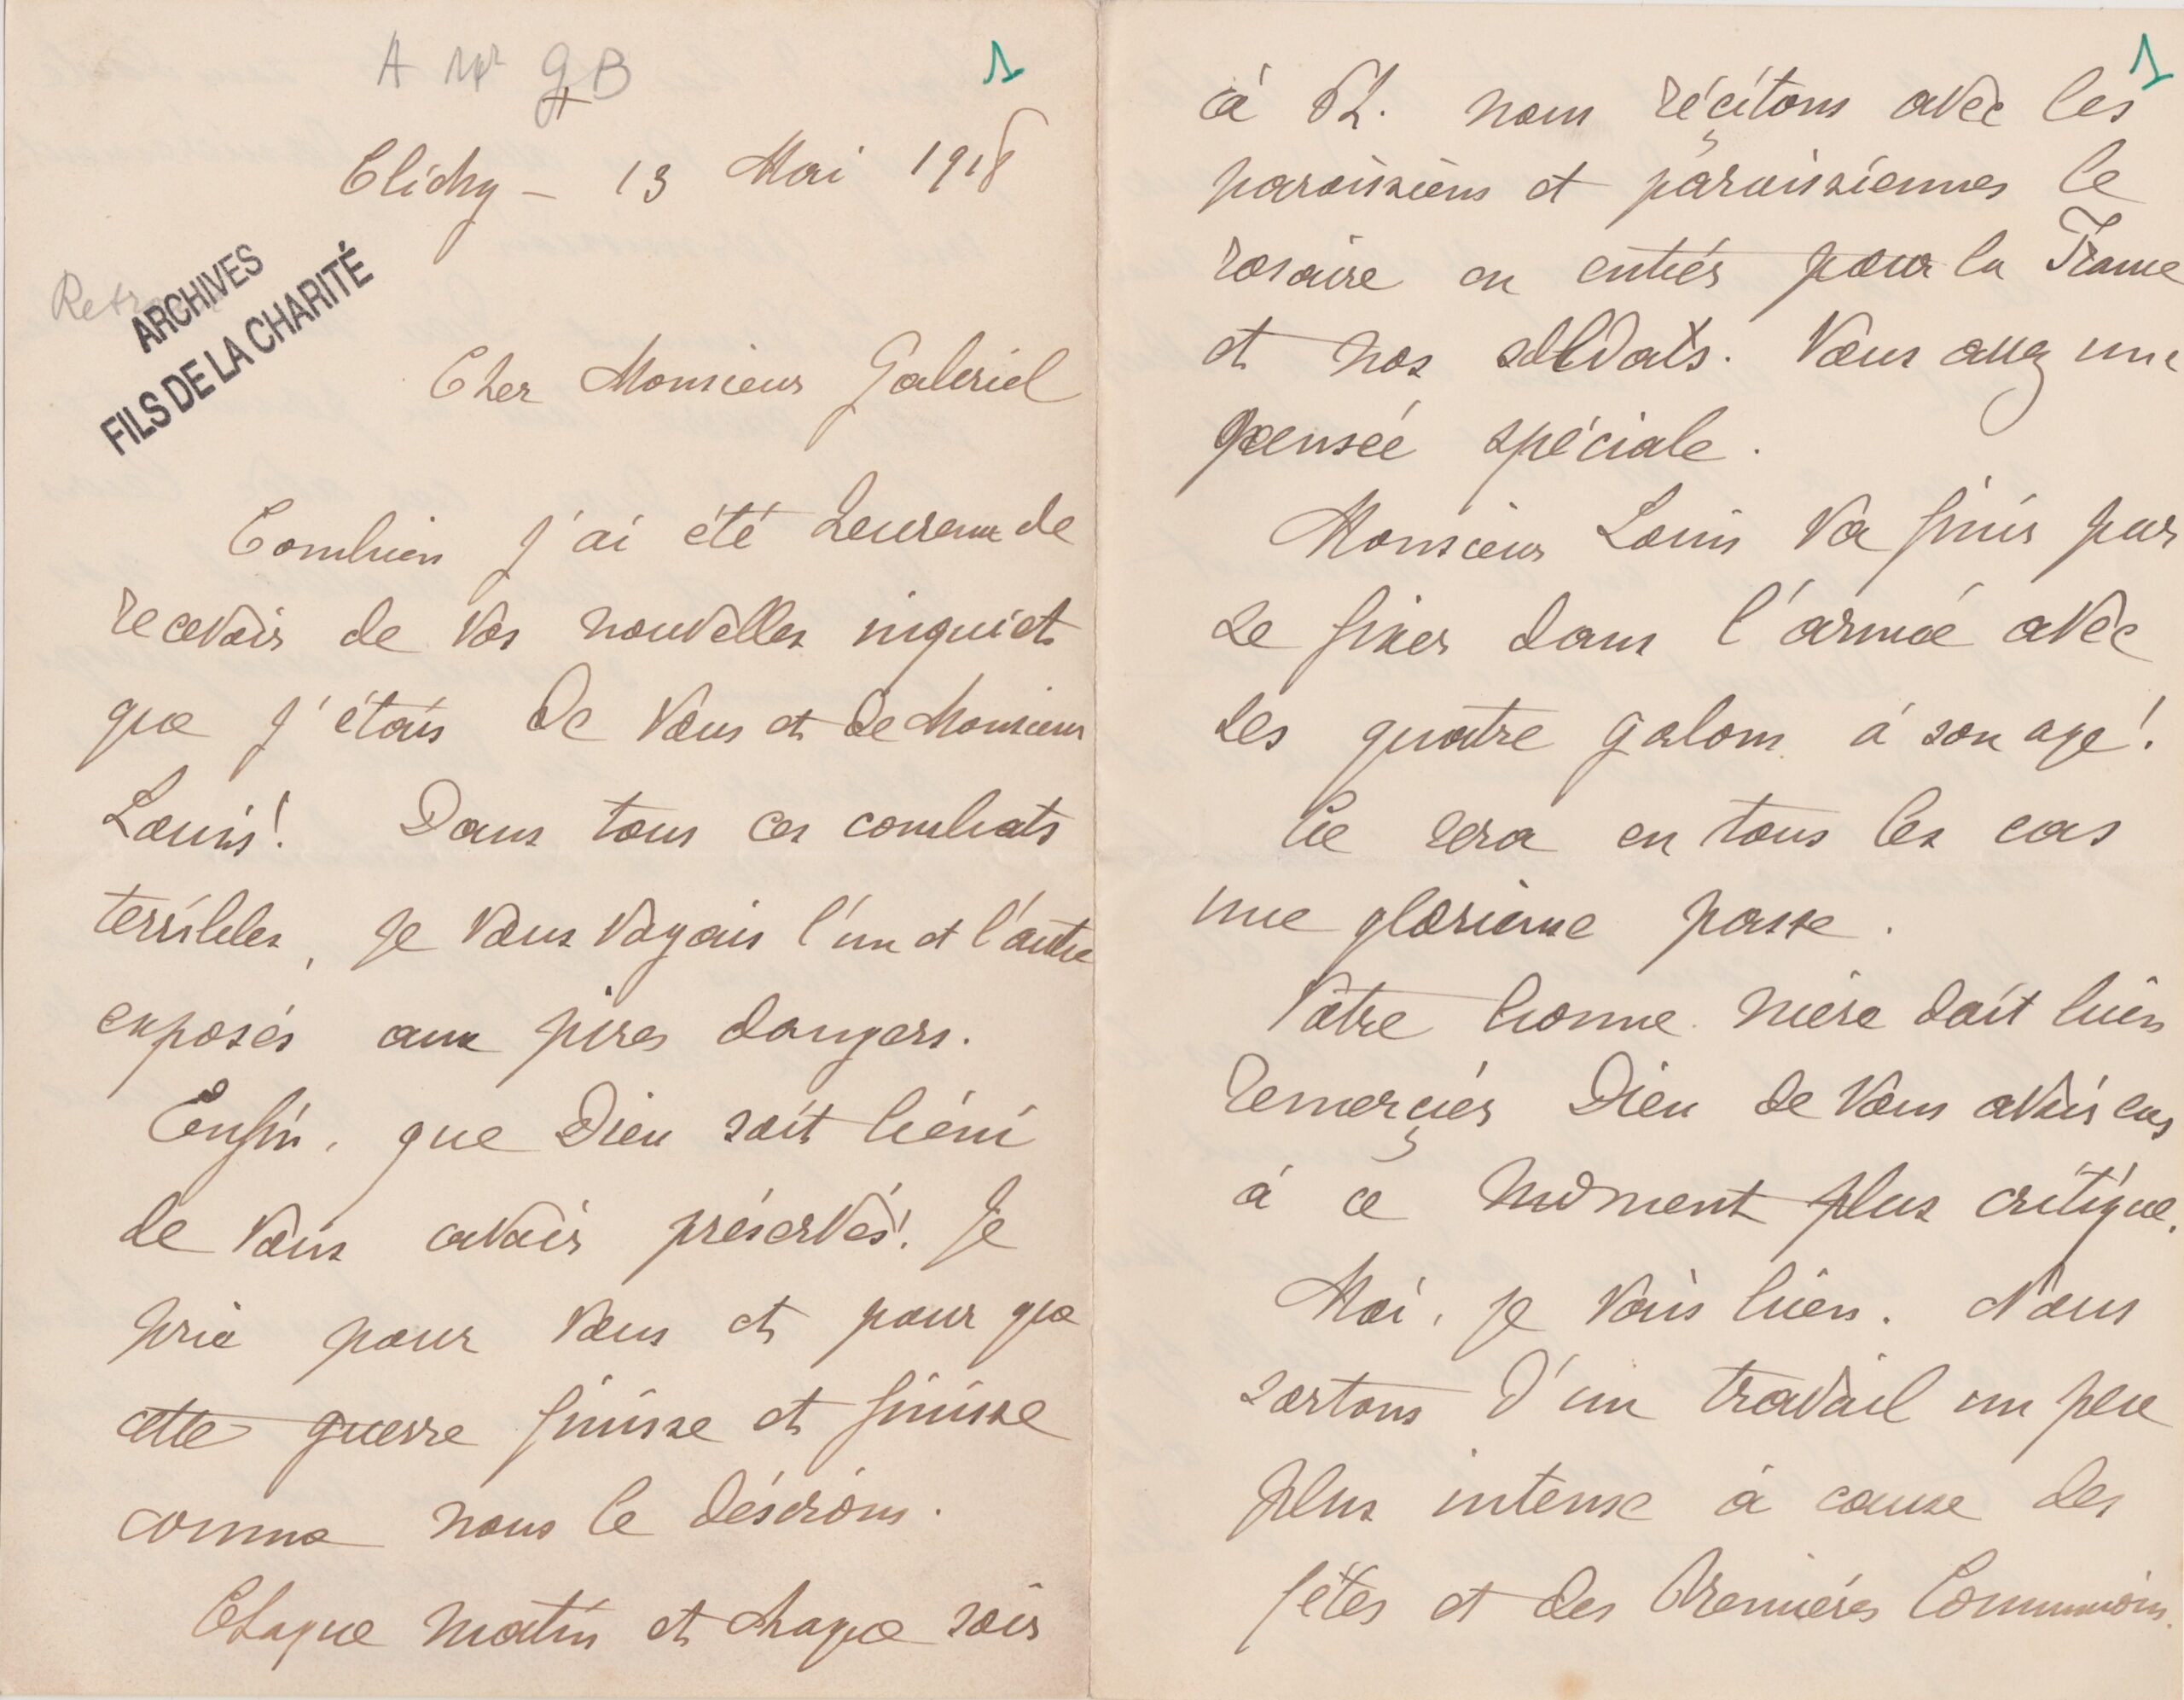 A Mr G B
1
+
Clichy - 13 Mai 1918
ARCHIVES
FILS DE LA CHARITÉ
Cher Monsieur Gabriel
Combien j'ai été heureux de
recevoir de vos nouvelles inquiet
que j'étais de vous et de Monsieur
Louis! Dans tous ces combats
terribles, je vous voyais l'un et l'autre
exposés aux pires dangers.
Enfin, que Dieu soit béni
de vous avoir préservés! Je
prie pour vous et pour que
cette guerre finisse et finisse
comme nous le désirons.
Chaque matin et chaque soir
1
à 8h. nous récitons avec les
paroissiens et paroissiennes le
rosaire en entier pour la France
et nos soldats. Vous avez une
pensée spéciale.
Monsieur Louis va finir par
se fixer dans l'armée avec
ses quatre galons à son age!
Ce sera en tous les cas
une glorieuse passe.
Votre bonne mère doit bien
remercier Dieu de vous avoir eus
à ce moment plus critique.
Moi, je vais bien. Nous
sortons d'un travail un peu
plus intense à cause des
fêtes et des Premières Communions.